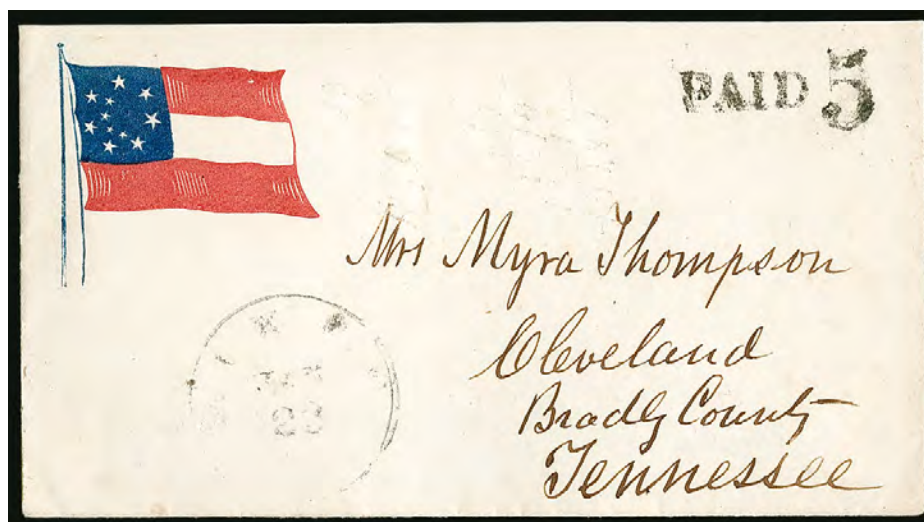 PAID 5
Mrs Myra Thompson
Cleveland
Bradly County
Tennessee